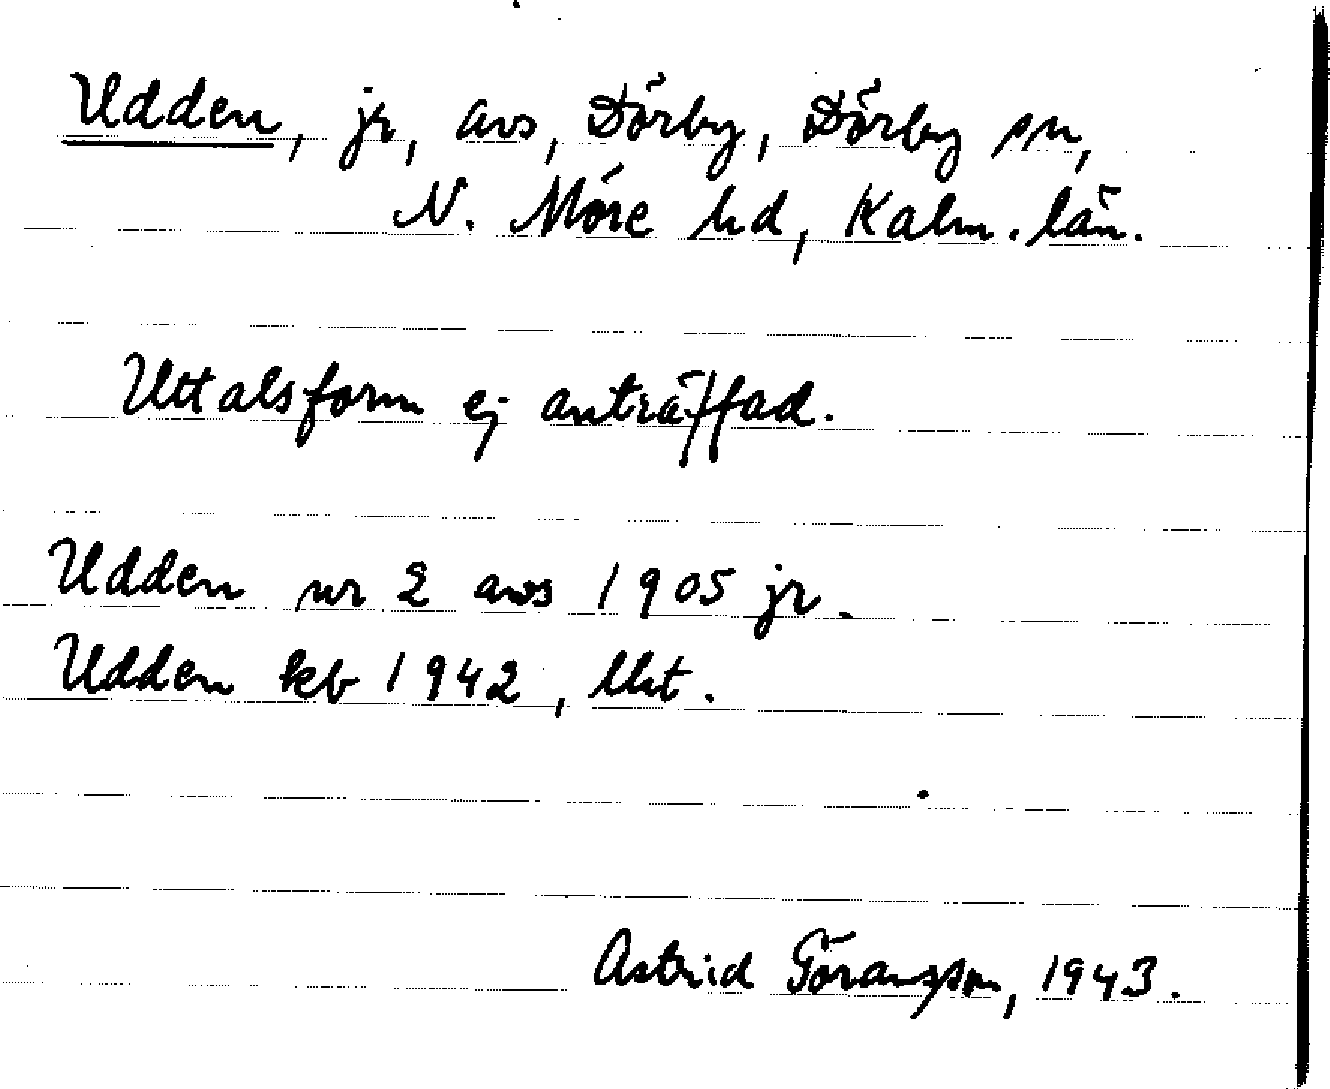 Udden, jr, avs, Dörby, Dörby sn,
N. Möre hd, Kalm. län.
Uttalsform ej anträffad.
Udden nr 2 avs 1905 jr.
Udden kb 1942, lht.
Astrid Göransson, 1943.